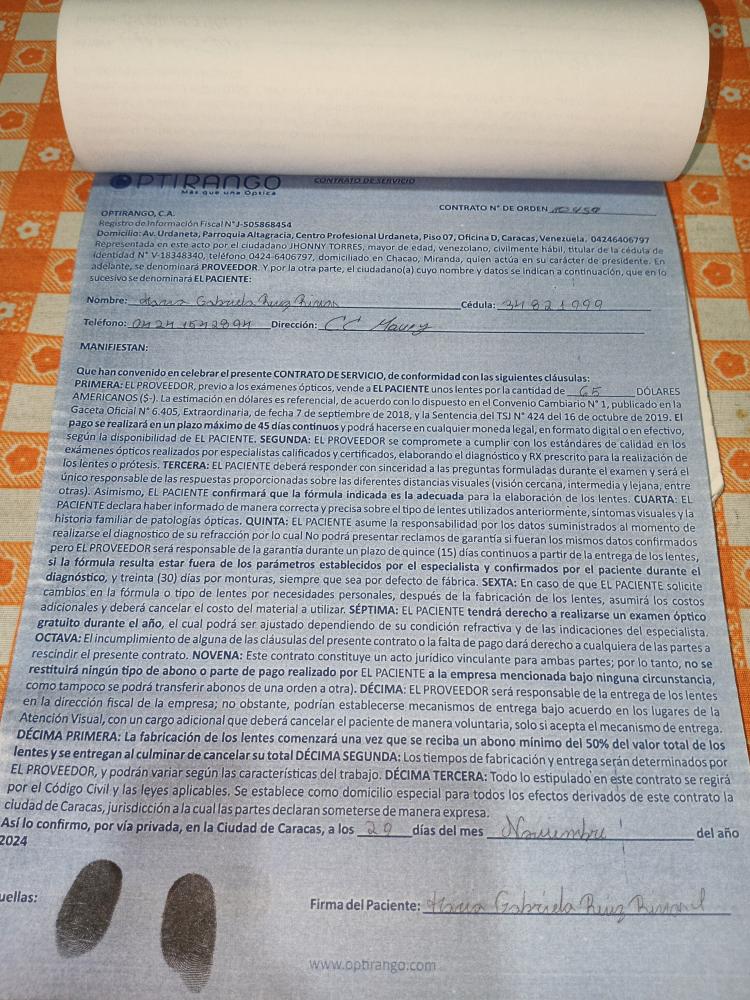 OPTIRANGO
Más que una Óptica
CONTRATO DE SERVICIO
CONTRATO N° DE ORDEN 10459
OPTIRANGO, C.A.
Registro de Información Fiscal N°J-505868454
Domicilio: Av. Urdaneta, Parroquia Altagracia, Centro Profesional Urdaneta, Piso 07, Oficina D, Caracas, Venezuela. 04246406797
Representada en este acto por el ciudadano JHONNY TORRES, mayor de edad, venezolano, civilmente hábil, titular de la cédula de
identidad N° V-18348340, teléfono 0424-6406797, domiciliado en Chacao, Miranda, quien actúa en su carácter de presidente. En
adelante, se denominará PROVEEDOR. Y por la otra parte, el ciudadano(a) cuyo nombre y datos se indican a continuación, que en lo
sucesivo se denominará EL PACIENTE:
Nombre: Gabriela Ruiz Cédula: 34821999
Teléfono: 04241542894 Dirección: CC
MANIFIESTAN:
Que han convenido en celebrar el presente CONTRATO DE SERVICIO, de conformidad con las siguientes cláusulas:
PRIMERA: EL PROVEEDOR, previo a los exámenes ópticos, vende a EL PACIENTE unos lentes por la cantidad de 65 DÓLARES
AMERICANOS ($-). La estimación en dólares es referencial, de acuerdo con lo dispuesto en el Convenio Cambiario N° 1, publicado en la
Gaceta Oficial N° 6.405, Extraordinaria, de fecha 7 de septiembre de 2018, y la Sentencia del TSJ N° 424 del 16 de octubre de 2019. El
pago se realizará en un plazo máximo de 45 días continuos y podrá hacerse en cualquier moneda legal, en formato digital o en efectivo,
según la disponibilidad de EL PACIENTE. SEGUNDA: EL PROVEEDOR se compromete a cumplir con los estándares de calidad en los
exámenes ópticos realizados por especialistas calificados y certificados, elaborando el diagnóstico y RX prescrito para la realización de
los lentes o prótesis. TERCERA: EL PACIENTE deberá responder con sinceridad a las preguntas formuladas durante el examen y será el
único responsable de las respuestas proporcionadas sobre las diferentes distancias visuales (visión cercana, intermedia y lejana, entre
otras). Asimismo, EL PACIENTE confirmará que la fórmula indicada es la adecuada para la elaboración de los lentes. CUARTA: EL
PACIENTE declara haber informado de manera correcta y precisa sobre el tipo de lentes utilizados anteriormente, síntomas visuales y la
historia familiar de patologías ópticas. QUINTA: EL PACIENTE asume la responsabilidad por los datos suministrados al momento de
realizarse el diagnostico de su refracción por lo cual No podrá presentar reclamos de garantía si fueran los mismos datos confirmados
pero EL PROVEEDOR será responsable de la garantía durante un plazo de quince (15) días continuos a partir de la entrega de los lentes,
si la fórmula resulta estar fuera de los parámetros establecidos por el especialista y confirmados por el paciente durante el
diagnóstico, y treinta (30) días por monturas, siempre que sea por defecto de fábrica. SEXTA: En caso de que EL PACIENTE solicite
cambios en la fórmula o tipo de lentes por necesidades personales, después de la fabricación de los lentes, asumirá los costos
adicionales y deberá cancelar el costo del material a utilizar. SÉPTIMA: EL PACIENTE tendrá derecho a realizarse un examen óptico
gratuito durante el año, el cual podrá ser ajustado dependiendo de su condición refractiva y de las indicaciones del especialista.
OCTAVA: El incumplimiento de alguna de las cláusulas del presente contrato o la falta de pago dará derecho a cualquiera de las partes a
rescindir el presente contrato. NOVENA: Este contrato constituye un acto jurídico vinculante para ambas partes; por lo tanto, no se
restituirá ningún tipo de abono o parte de pago realizado por EL PACIENTE a la empresa mencionada bajo ninguna circunstancia,
como tampoco se podrá transferir abonos de una orden a otra). DÉCIMA: EL PROVEEDOR será responsable de la entrega de los lentes
en la dirección fiscal de la empresa; no obstante, podrían establecerse mecanismos de entrega bajo acuerdo en los lugares de la
Atención Visual, con un cargo adicional que deberá cancelar el paciente de manera voluntaria, solo si acepta el mecanismo de entrega.
DÉCIMA PRIMERA: La fabricación de los lentes comenzará una vez que se reciba un abono mínimo del 50% del valor total de los
lentes y se entregan al culminar de cancelar su total DÉCIMA SEGUNDA: Los tiempos de fabricación y entrega serán determinados por
EL PROVEEDOR, y podrán variar según las características del trabajo. DÉCIMA TERCERA: Todo lo estipulado en este contrato se regirá
por el Código Civil y las leyes aplicables. Se establece como domicilio especial para todos los efectos derivados de este contrato la
ciudad de Caracas, jurisdicción a la cual las partes declaran someterse de manera expresa.
Así lo confirmo, por vía privada, en la Ciudad de Caracas, a los 29 días del mes Noviembre del año
2024
uellas:
Firma del Paciente: Gabriela Ruiz
www.optirango.com